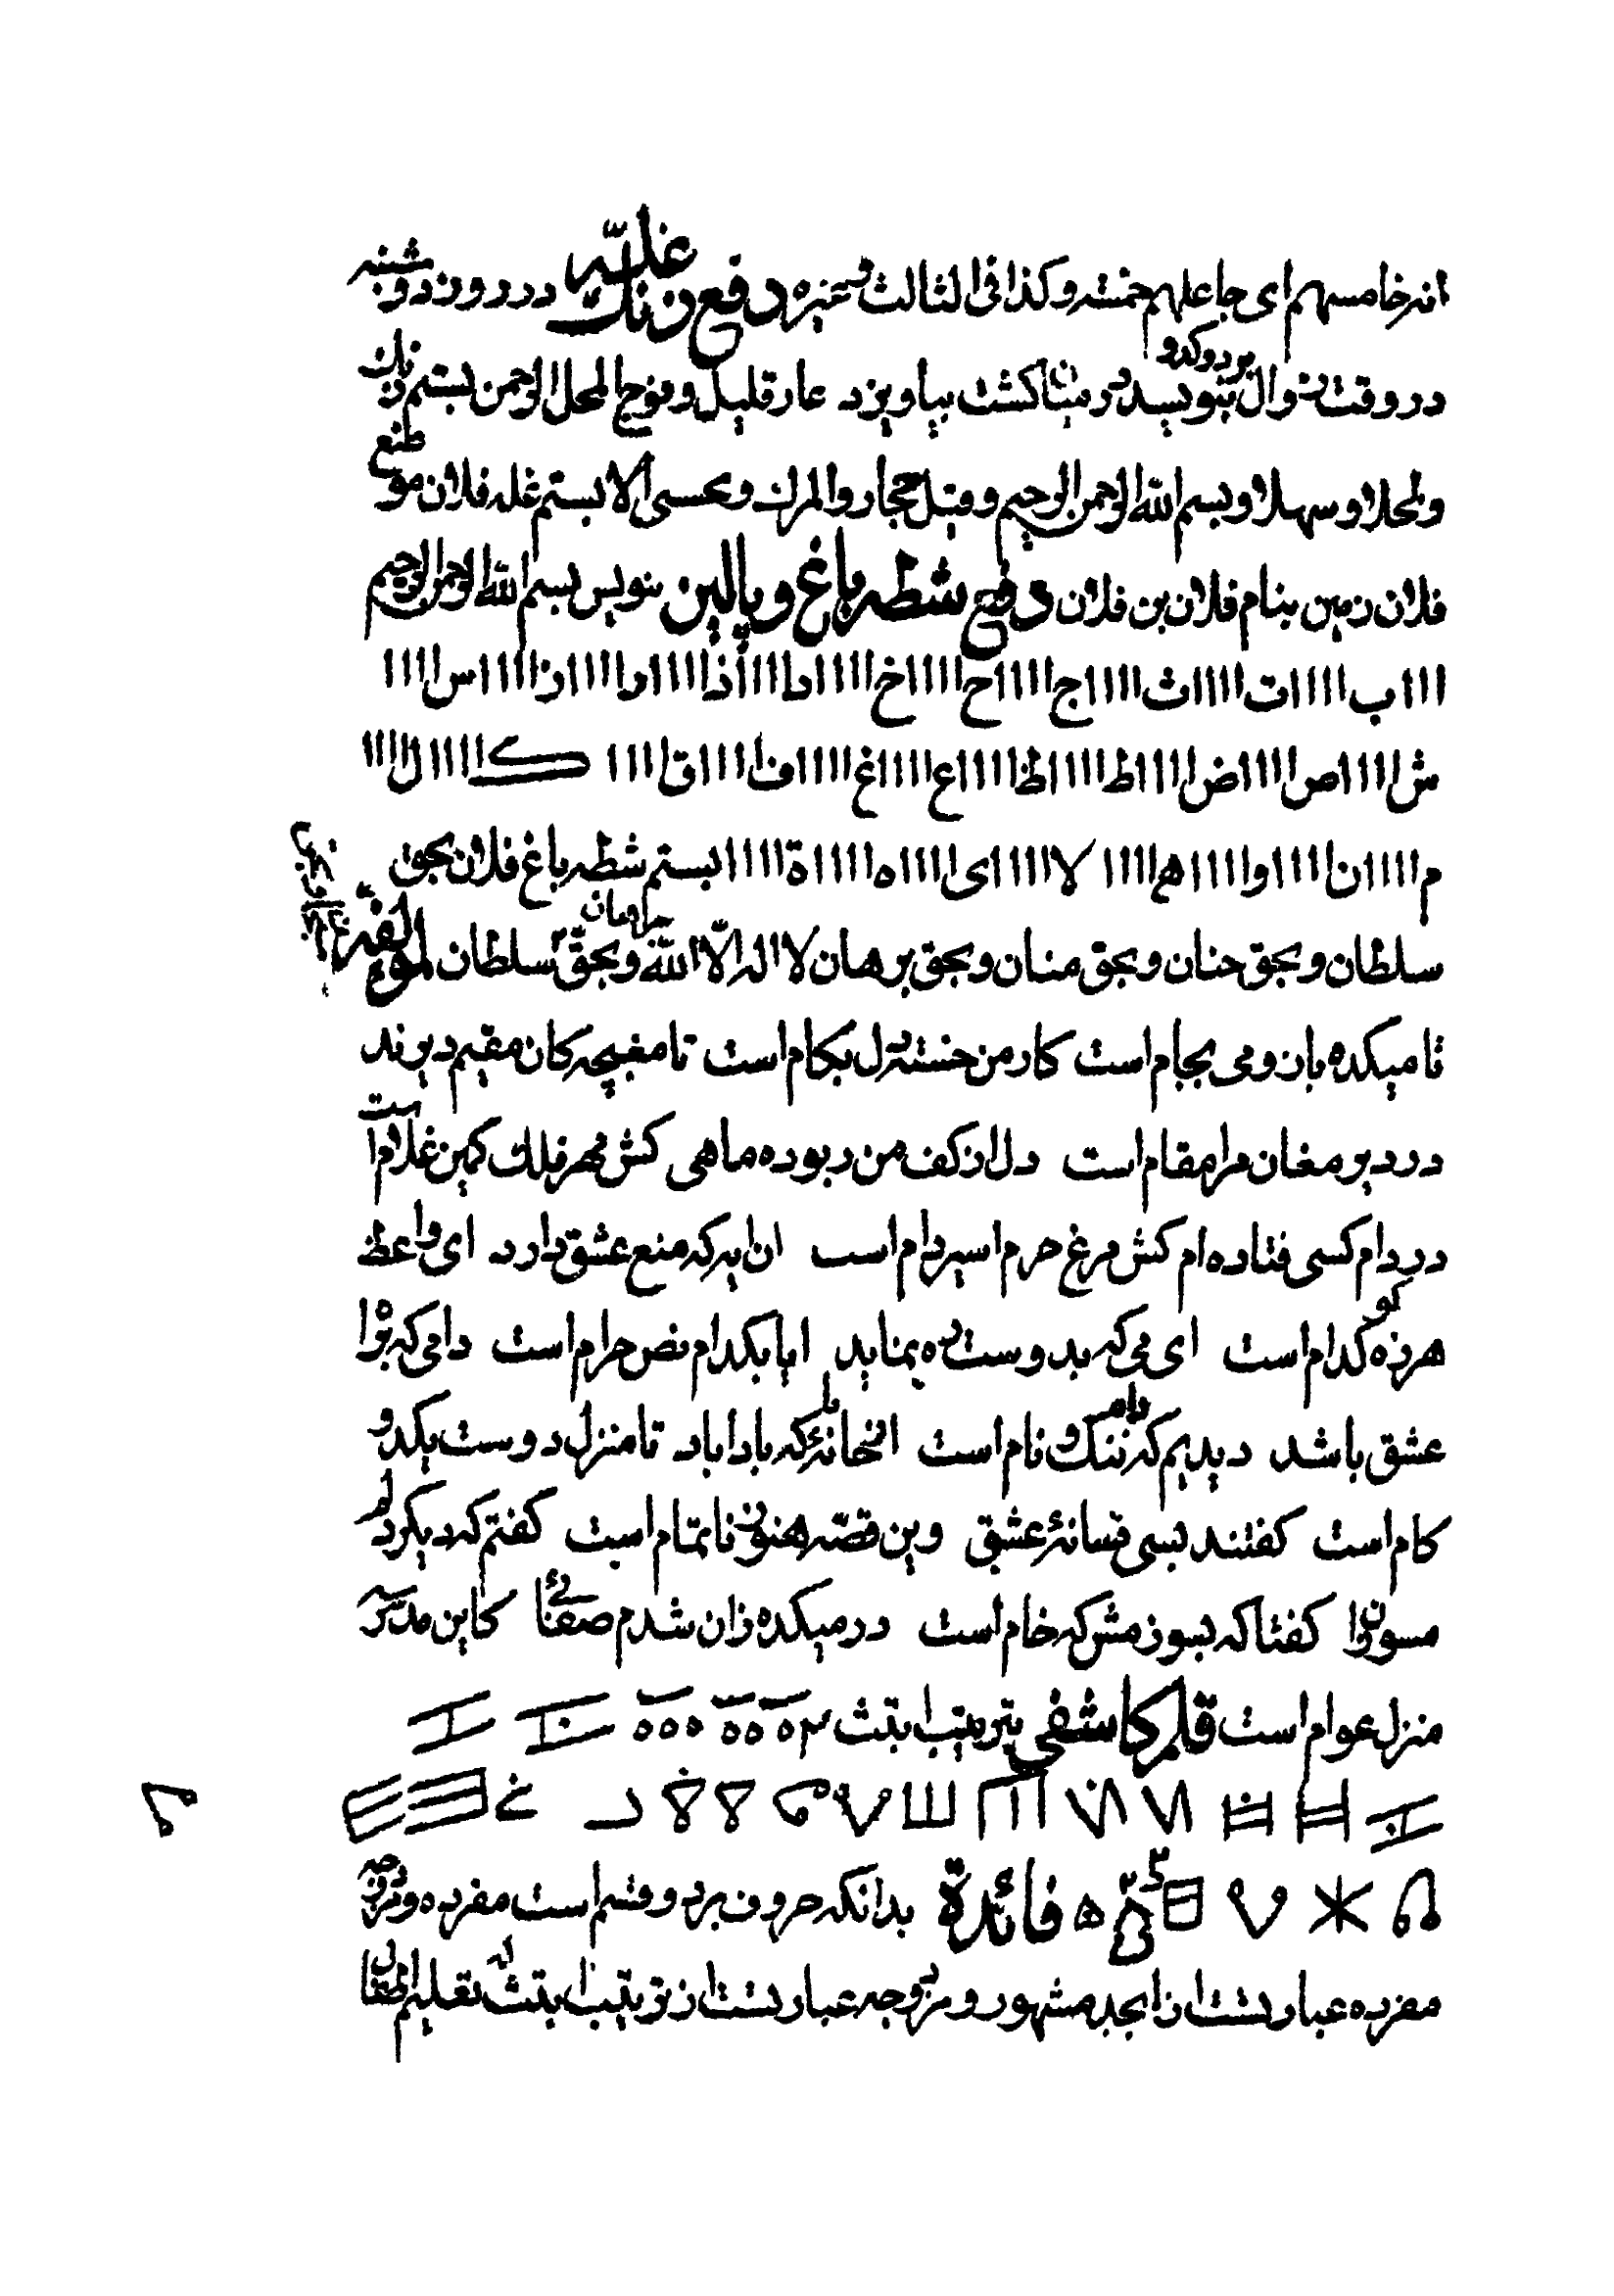 انه خامسهم ای جاعلهم خمسة وکذا فی الثالث وغیره دفع زنك غله در روز دوشنبه
در وقت زوال بنویسد بر دو کدو در میان کشت بیاویزد عار قلیل و فوجا لمحل الرحمن بستم زنك
ولمحلا و سهلا و بسم الله الرحمن الرحیم و قبل حجار والمرك و عسی الا بستم غله فلان موضع
فلان زمین بنام فلان بن فلان دفع شطه باغ و پالیز بنویس بسم الله الرحمن الرحیم
ااا ب اااا ت اااا ث اااا ج اااا ح اااا خ اااا د اااا ذ اااا ر اااا ز اااا س ااا
ش اااا ص اااا ض اااا ط اااا ظ اااا ع اااا غ اااا ف اااا ق ااا ك اااا ل ااا
م اااا ن اااا و اااا ه اااا لا اااا ی اااا ه اااا ة اااا بستم شطه باغ فلان بحق
سلطان و بحق حنان و بحق منان و بحق برهان لا اله الّا الله و بحق سلطان لمؤلفه
تا میکده باز و می بجام است کار من خسته دل بکام است تا مغبچه کان مقیم دیرند
در دیر مغان مرا مقام است دل از کف من ربوده ماهی کش مهر فلك کمین غلام است
در دام کسی فتاده ام کش مرغ حرم اسیر دام است ان ایه که منع عشق دارد ای واعظ
هرزه کو کدام است ای می که بدوست ره نماید ایا بکدام نص حرام است دامی که بره
عشق باشد دیدیم که ننك و نام است که بادا باد تا منزل دوست یکدو
کام است کفتند بسی فسانۀ عشق وین قصه هنوز ناتمام است کفتم که دیکر دلم
مسوزان را کفتا که بسوزمش که خام است در میکده زان شدم صفائی کاین مدرسه
منزل عوام است قلم کاشفی بترتیب ابتث
فائدة بدانکه حروف بر دو قسم است مفرده و مزدوجه
مفرده عبارتست از ابجد مشهور و مزدوجه عبارتست از ترتیب ابتث که تعلیم اطفال